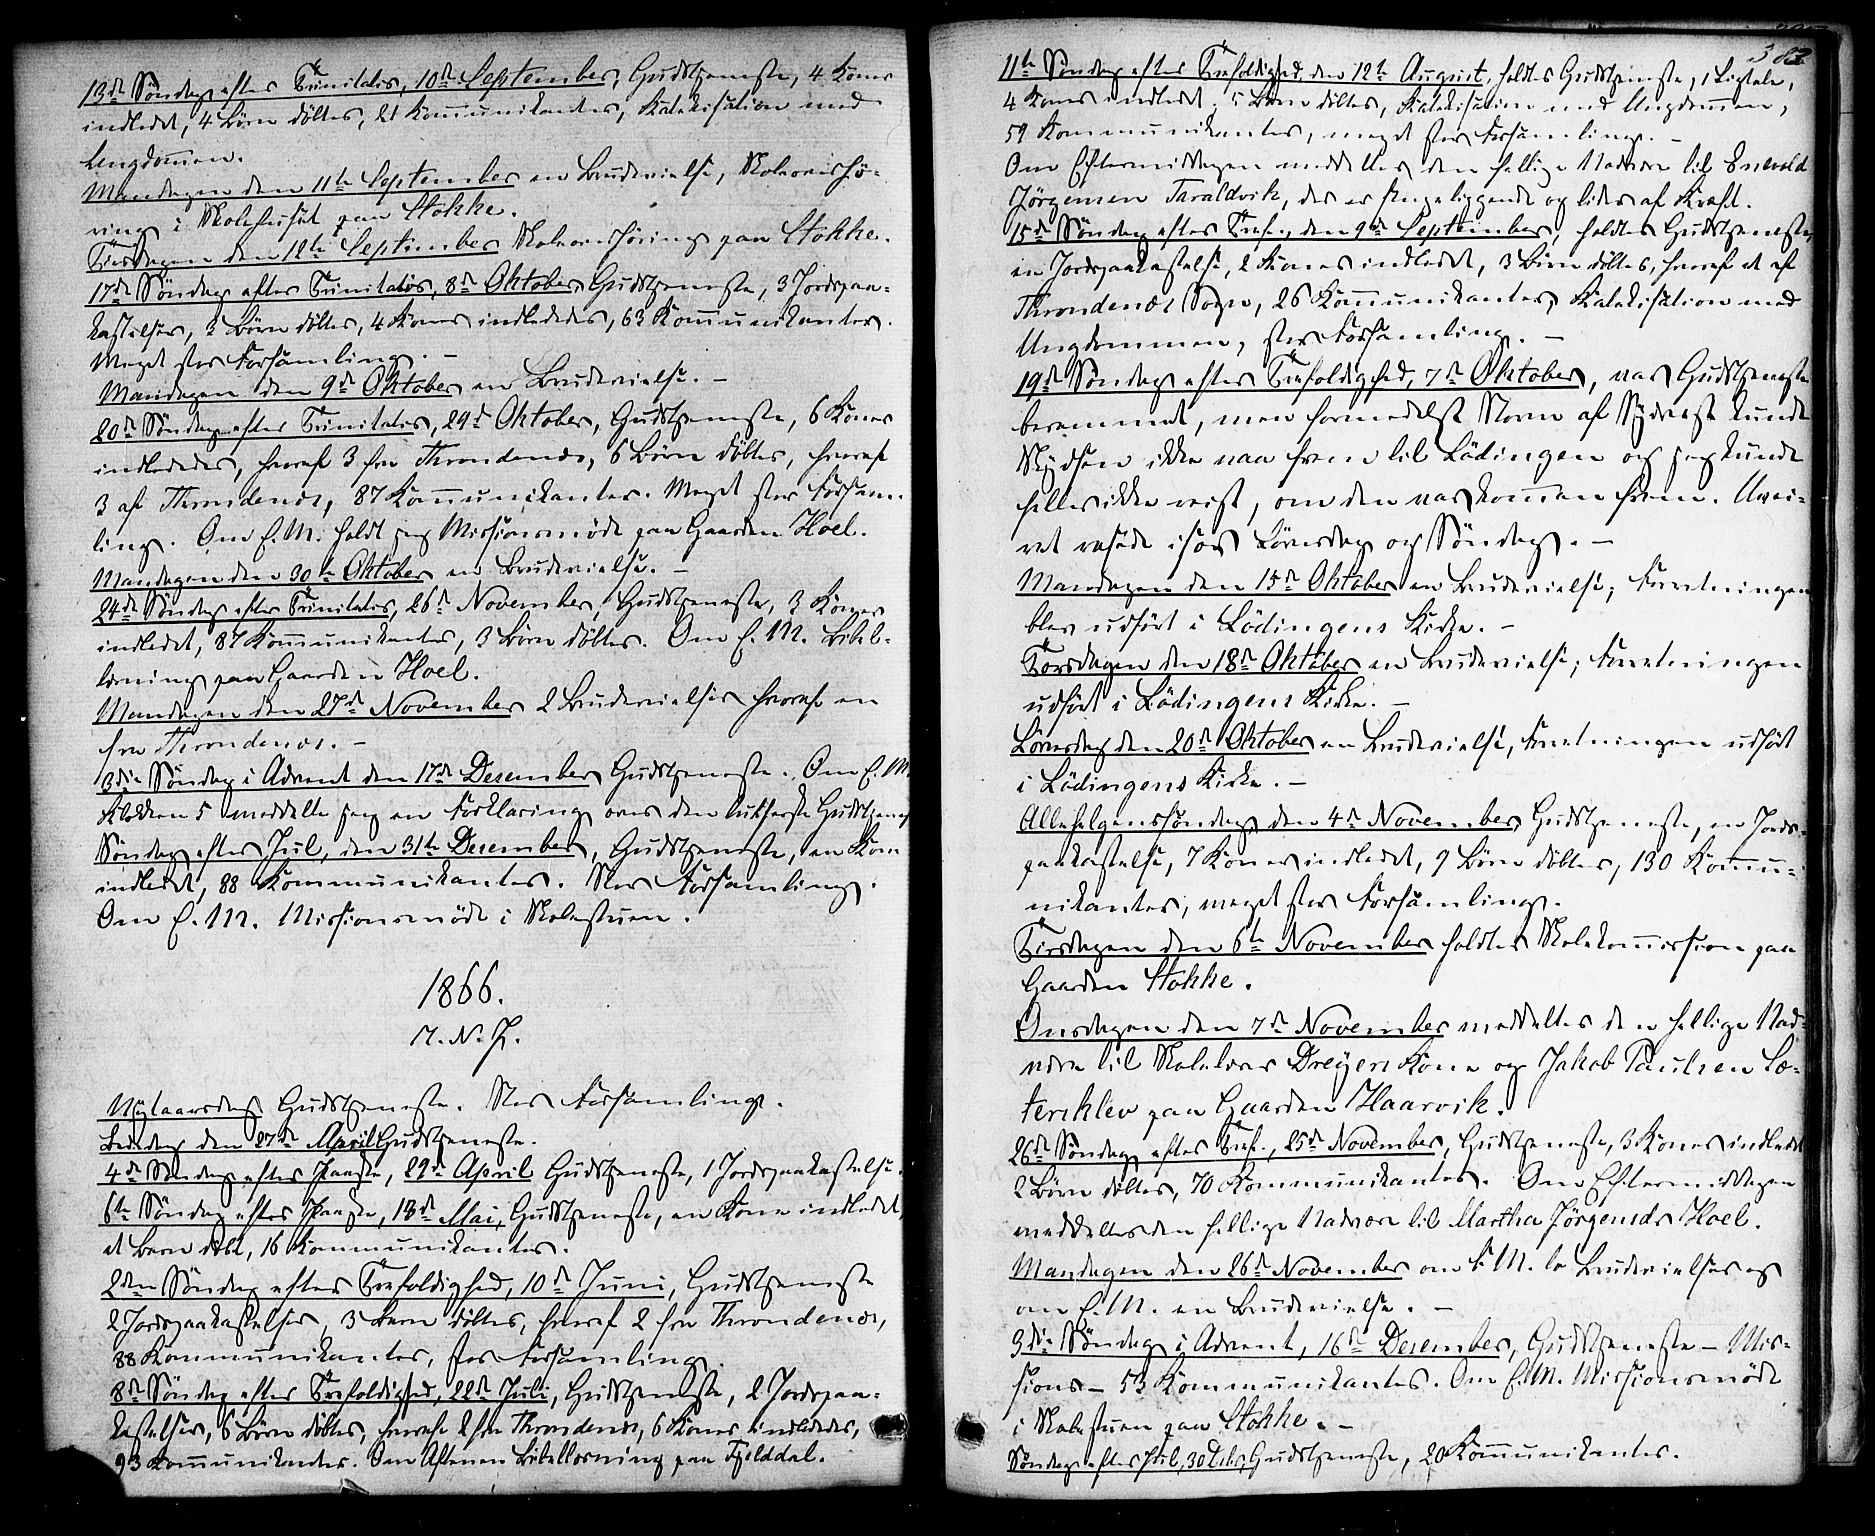 13de Søndag efter Trinitatis, 10de September, Gudstjeneste, 4 Koner
indledet, 4 Børn døbtes, 21 Kommunikanter, Katekisation med
Ungdommen.
Mandagen den 11te September en Brudevielse, Skoleovershø-
ring i Skolehuset paa Stokke.
Tirsdagen den 12te September Skoleovershøring paa Stokke.
17de Søndag efter Trinitatis, 8de Oktober, Gudstjeneste, 3 Jordspaa-
kastelser, 3 Børn døbtes, 4 Koner indlededes, 63 Kommunikanter.
Meget stor Forsamling. –
Mandagen den 9de Oktober en Brudevielse. –
20de Søndag efter Trinitatis, 29d Oktober, Gudstjeneste, 6 Koner
indlededes, hvoraf 3 fra Throndenæs, 6 Børn døbtes, hvoraf
3 af Throndenæs, 87 Kommunikanter. Meget stor Forsam-
ling. Om E.M. holdt jeg Missionsmøde paa Gaarden Hoel.
Mandagen den 30te Oktober en Brudevielse. –
24de Søndag efter Trinitatis, 26d November, Gudstjeneste, 3 Koner
indledet, 87 Kommunikanter, 3 Børn døbtes. Om E.M. Bibel-
læsning paa Gaarden Hoel.
Mandagen den 27de November 2 Brudevielser hvoraf en
fra Throndenæs. –
3die Søndag i Advent den 17de Desember Gudstjeneste. Om E.M.
Klokken 5 meddelte jeg en Forklaring over den lutherske Gudstjeneste
Søndag efter Jul, den 31te Desember, Gudstjeneste, en Kone
indledet, 88 Kommunikanter. Stor Forsamling.
Om E.M. Missionsmøde i Skolestuen.
1866.
I. N. J.
Nytaarsdag Gudstjeneste. Stor Forsamling.
Bededag den 27de April Gudstjeneste.
4de Søndag efter Paaske, 29de April Gudstjeneste, 1 Jordspaakastelse.
6te Søndag efter Paaske, 13de Mai, Gudstjeneste, en Kone indledet,
et Barn døbt, 16 Kommunikanter.
2den Søndag efter Trefoldighed, 10de Juni, Gudstjeneste
2 Jordspaakastelser, 3 Børn døbtes, hvoraf 2 fra Throndenæs,
88 Kommunikanter, stor Forsamling.
8de Søndag efter Trefoldighed, 22de Juli, Gudstjeneste, 2 Jordspaa-
kastelser, 6 Børn døbtes, hvoraf 2 fra Throndenæs, 6 Koner indlededes,
93 Kommunikanter. Om Aftenen Bibellæsning paa Fjelddal.
382
11te Søndag efter Trefoldighed, den 12te August, holdtes Gudstjeneste, 1 Ligtale,
4 Koner indledet, 5 Børn døbtes, Katekisation med Ungdommen,
59 Kommunikanter, meget stor Forsamling. –
Om Eftermiddagen meddeltes den hellige Nadvere til Enevold
Jørgensen Taraldvik, der er sengeliggende og lider af Kræft.
15de Søndag efter Tref., den 9de September, holdtes Gudstjeneste,
en Jordspaakastelse, 2 Koner indledet, 3 Børn døbtes, hvoraf et af
Throndenæs Sogn, 26 Kommunikanter, Katekisation med
Ungdommen, stor Forsamling. –
19de Søndag efter Trefoldighed, 7de Oktober, var Gudstjeneste
berammet, men formedelst Storm af Sydvest kunde
Skydsen ikke naa frem til Lödingen og jeg kunde
heller ikke reist, om den var kommen frem. Uvei-
ret rasede især Lørdag og Søndag. –
Mandagen den 15de Oktober en Brudevielse; Forretningen
blev udført i Lödingens Kirke. –
Torsdagen den 18de Oktober en Brudevielse; Forretningen
udført i Lödingens Kirke. –
Løverdag den 20de Oktober en Brudevielse, Forretningen udført
i Lödingens Kirke. –
Allehelgenssøndag, den 4de November, Gudstjeneste, en Jords-
paakastelse, 7 Koner indledet, 9 Børn døbtes, 130 Kommu-
nikanter, meget stor Forsamling.
Tirsdagen den 6te November holdtes Skolekommission paa
Gaarden Stokke.
Onsdagen den 7de November meddeltes den hellige Nad-
vere til Skolelærer Dreyers Kone og Jakob Paulsen Sæ-
terklev paa Gaarden Haarvik.
26de Søndag efter Tref., 25de November, Gudstjeneste, 3 Koner indledet
2 Børn døbtes, 70 Kommunikanter. Om Eftermiddagen
meddeltes den hellige Nadvere til Martha Jørgensdr Hoel.
Mandagen den 26de November om F.M. to Brudevielser og
om E.M. en Brudevielse. –
3die Søndag i Advent, 16de Desember, Gudstjeneste – Mis-
sions – 53 Kommunikanter. Om E.M. Missionsmøde
i Skolestuen paa Stokke. –
Søndag efter Jul, 30 Debr, Gudstjeneste, 20 Kommunikanter.